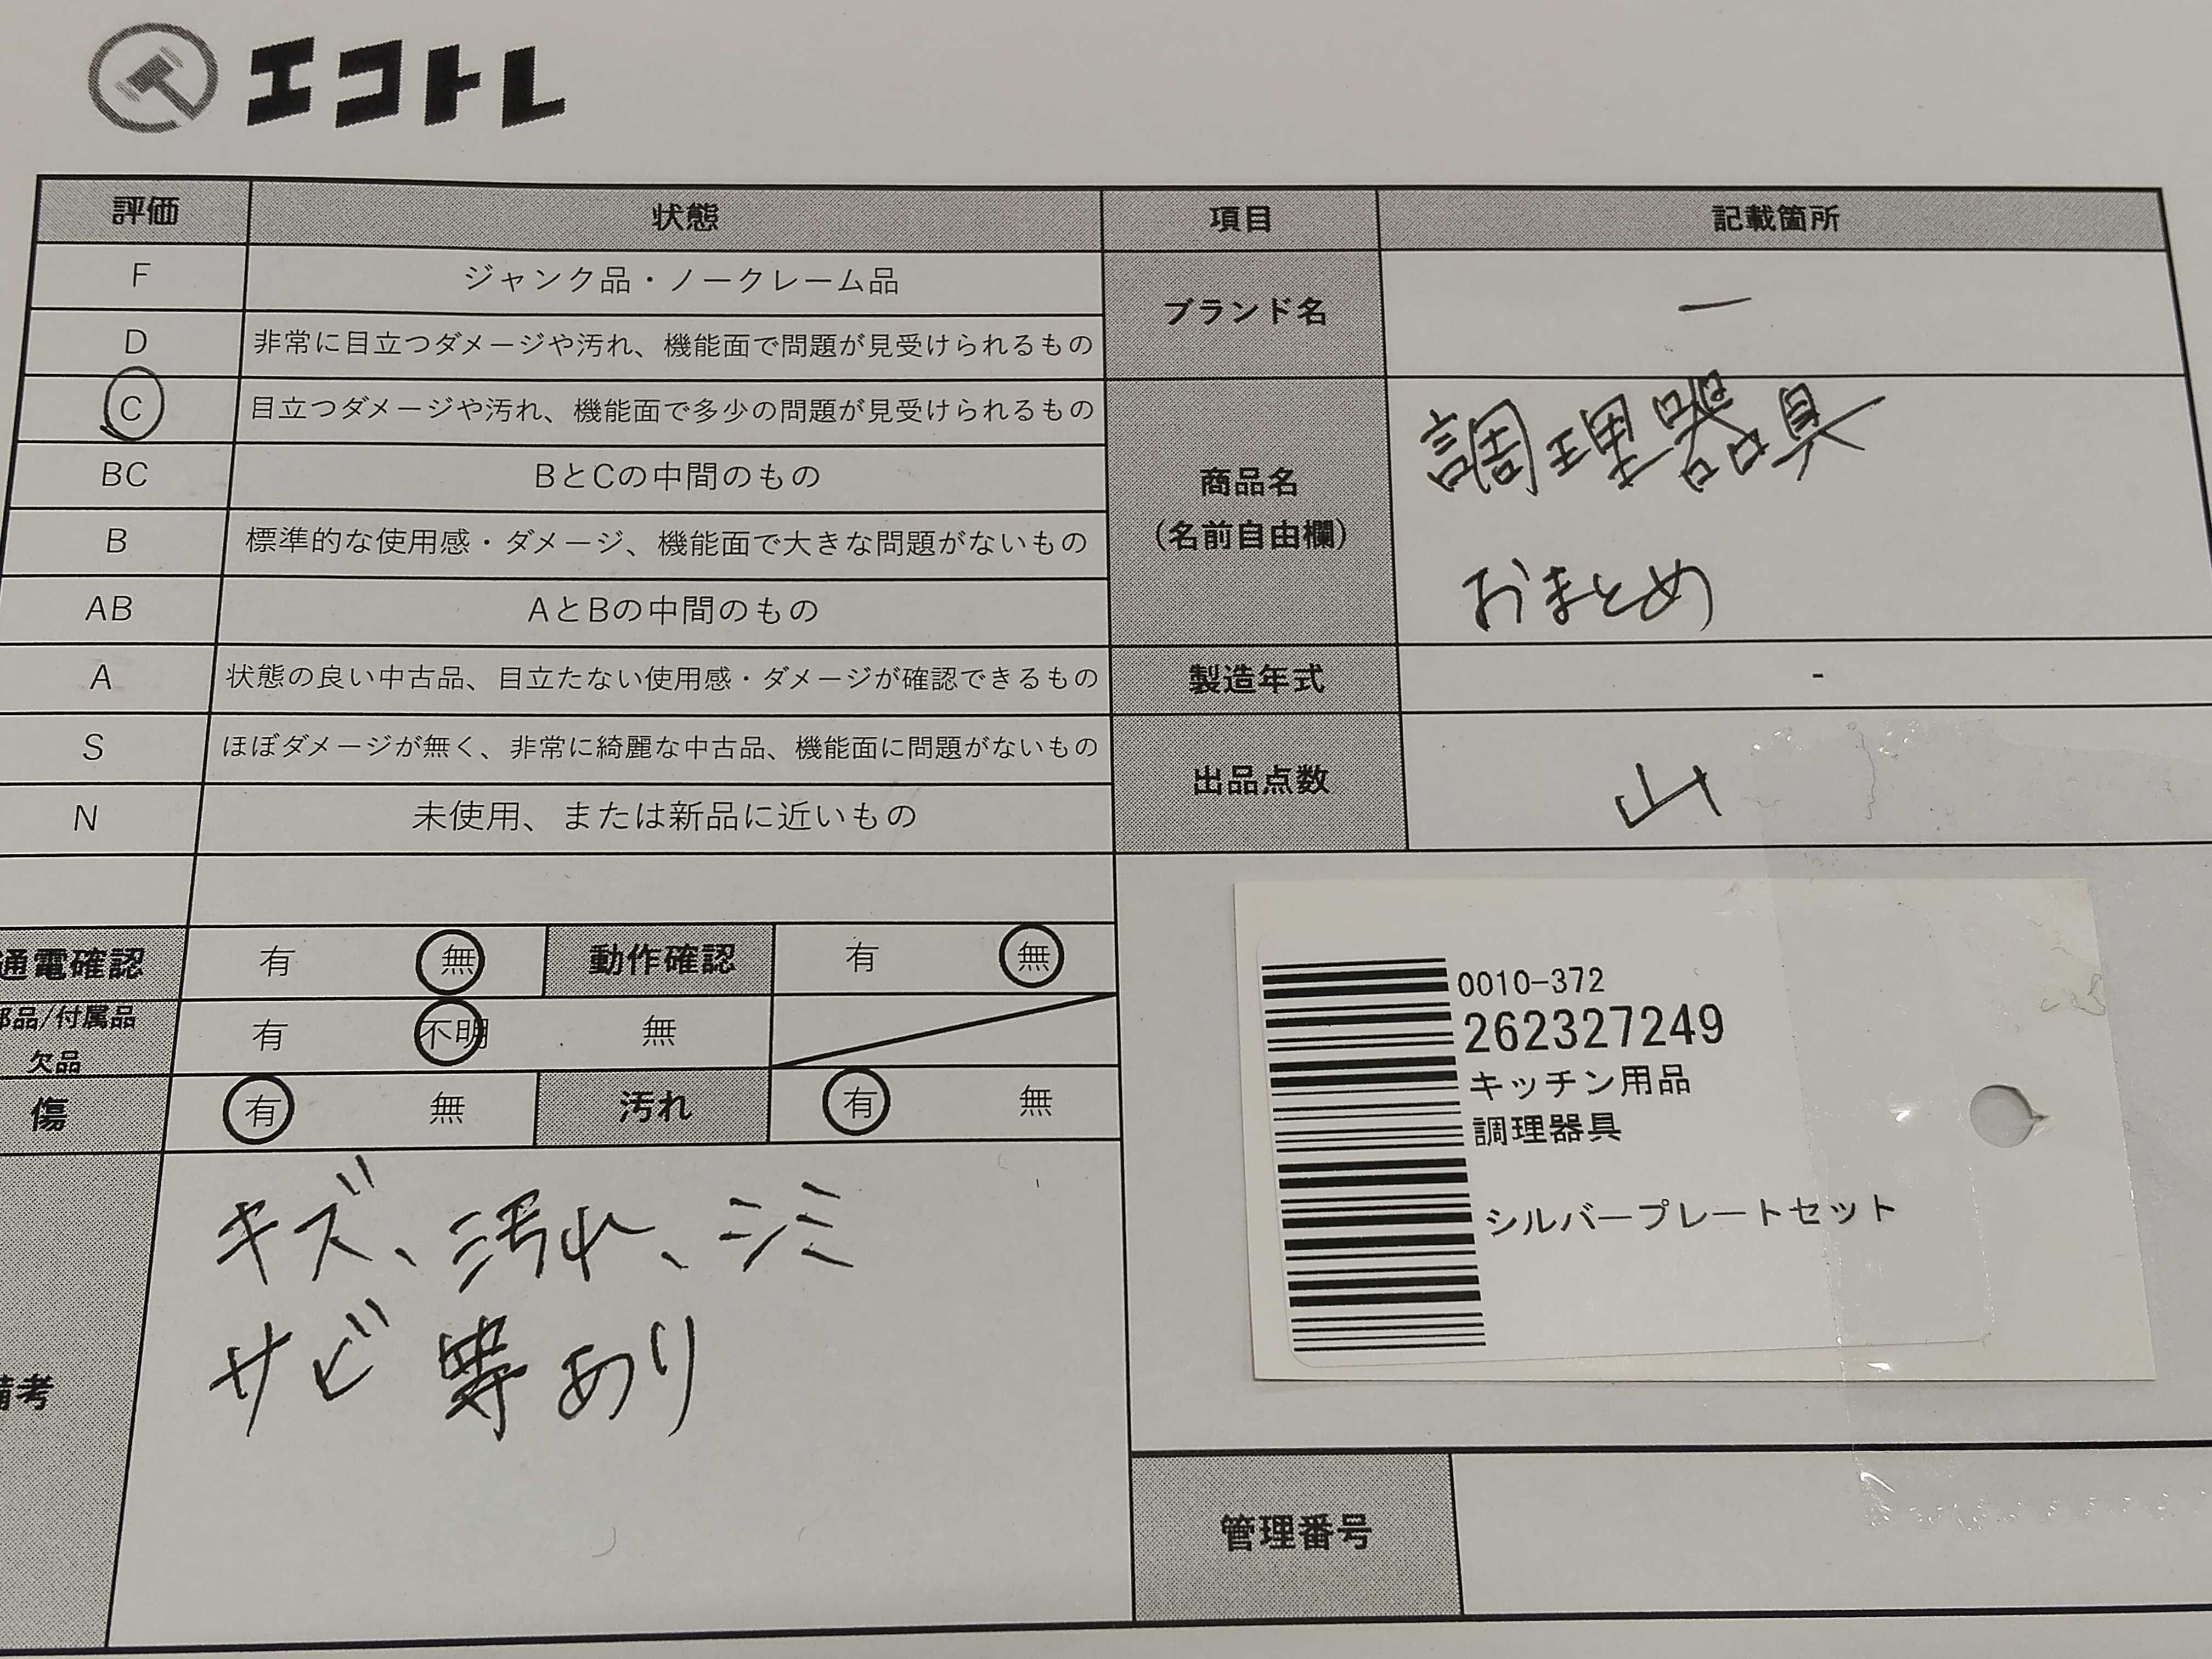 エコトレ
評価 状態 項目 記載箇所
F ジャンク品・ノークレーム品
ブランド名 ー
D 非常に目立つダメージや汚れ、機能面で問題が見受けられるもの
C 目立つダメージや汚れ、機能面で多少の問題が見受けられるもの
商品名
(名前自由欄)
調理器具
おまとめ
BC BとCの中間のもの
B 標準的な使用感・ダメージ、機能面で大きな問題がないもの
AB AとBの中間のもの
A 状態の良い中古品、目立たない使用感・ダメージが確認できるもの
製造年式 -
S ほぼダメージが無く、非常に綺麗な中古品、機能面に問題がないもの
出品点数 山
N 未使用、または新品に近いもの
通電確認 有 無 動作確認 有 無
部品/付属品
欠品
有 不明 無
傷 有 無 汚れ 有 無
備考
キズ、汚れ、シミ
サビ等あり
0010-372
262327249
キッチン用品
調理器具
シルバープレートセット
管理番号